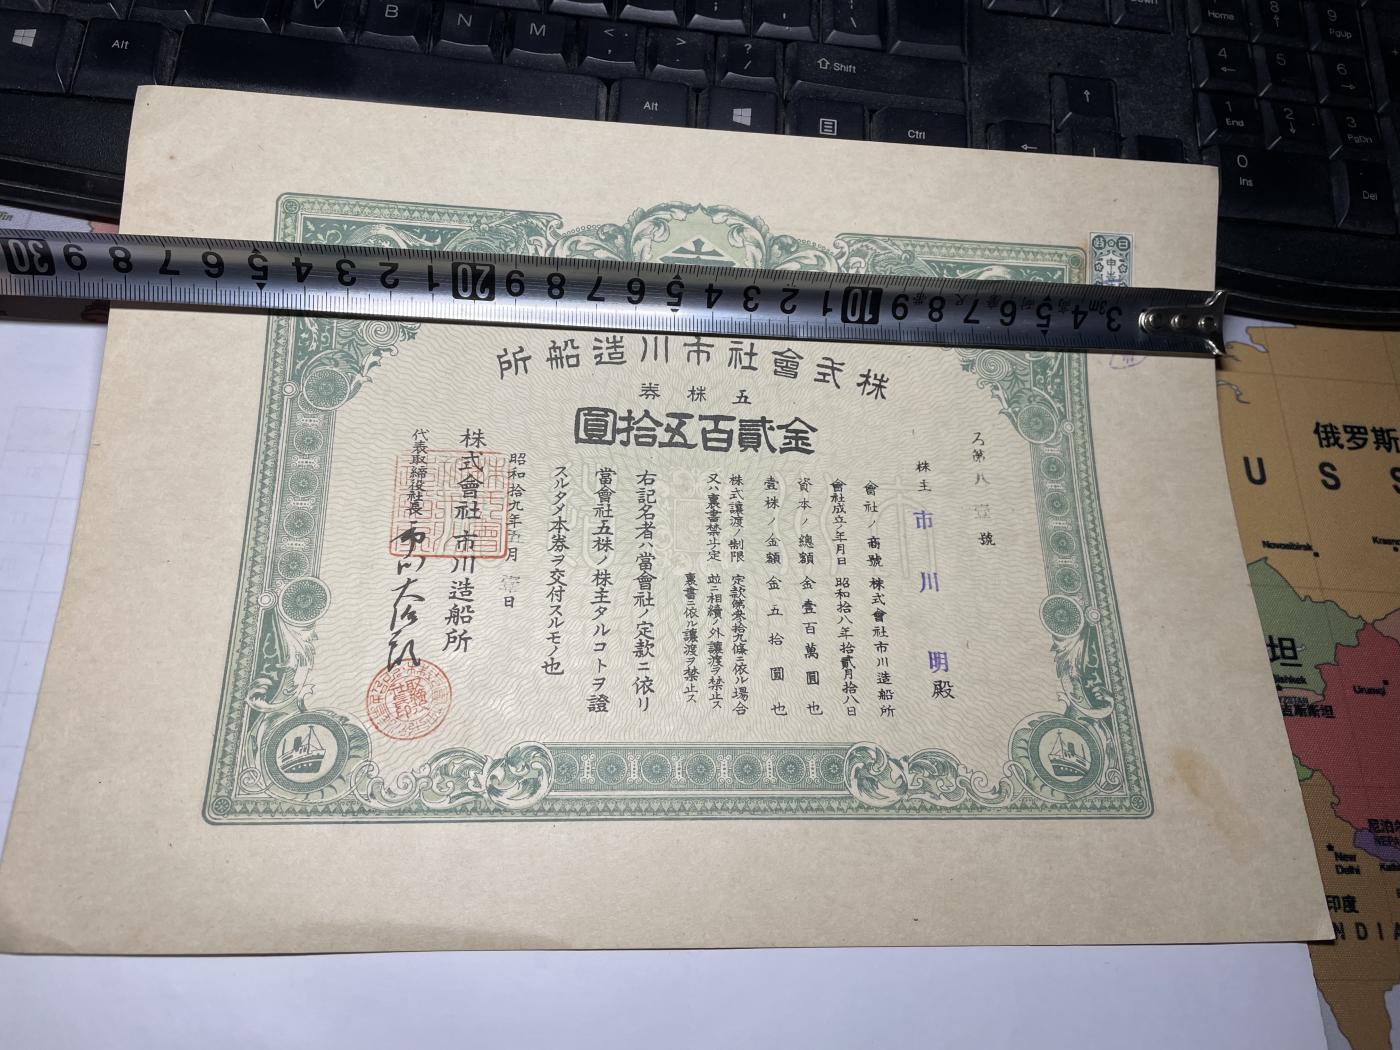 株式會社市川造船所
五株券
金貳百五拾圓
ろ第八壹號
株主 市川 明殿
會社ノ商號 株式會社市川造船所
會社成立ノ年月日 昭和拾八年拾貳月拾八日
資本ノ總額 金壹百萬圓也
壹株ノ金額 金五拾圓也
株式讓渡ノ制限 定款第參拾九條ニ依ル場合
又ハ裏書禁止ノ定 並ニ相續ノ外讓渡ヲ禁止ス
裏書ニ依ル讓渡ヲ禁止ス
右記名者ハ當會社ノ定款ニ依リ
當會社五株ノ株主タルコトヲ證
スルタメ本券ヲ交付スルモノ也
昭和拾九年五月壹日
株式會社市川造船所
代表取締役社長 市川大治郎
30 9 8 7 6 5 4 3 2 1 20 9 8 7 6 5 4 3 2 1 10 9 8 7 6 5 4 3
3m
Alt
B N M
< ,
> .
? /
Shift
Alt
Ctrl
Home
8
9 PgUp
4
5
6
1 End
2
3 PgDn
0 Ins
Del
俄罗斯
U S S
Novosibirsk
坦
Bishkek
吉尔吉斯斯坦
Urumqi
New Delhi
印度
INDIA